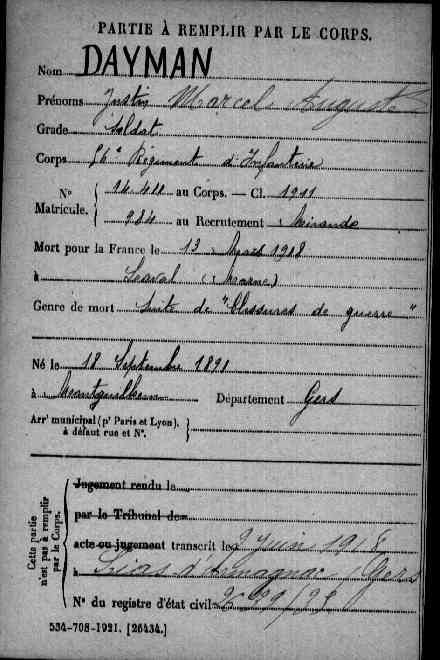 PARTIE À REMPLIR PAR LE CORPS.
Nom DAYMAN
Prénoms Justin Marcel Auguste
Grade Soldat
Corps Régiment d'Infanterie
N° Matricule. 14 411 au Corps. — Cl. 1911
984 au Recrutement Mirande
Mort pour la France le 13 Mars 1918
à (Marne)
Genre de mort Suite de "blessures de guerre"
Né le 18 Septembre 1891
à Département Gers
Arr' municipal (p' Paris et Lyon),
à défaut rue et N°.
Cette partie n'est pas à remplir par le Corps.
Jugement rendu le
par le Tribunal de
acte ou jugement transcrit le 2 Juin 1918
à Lias d'Armagnac (Gers
N° du registre d'état civil
534-708-1921. [26434.]